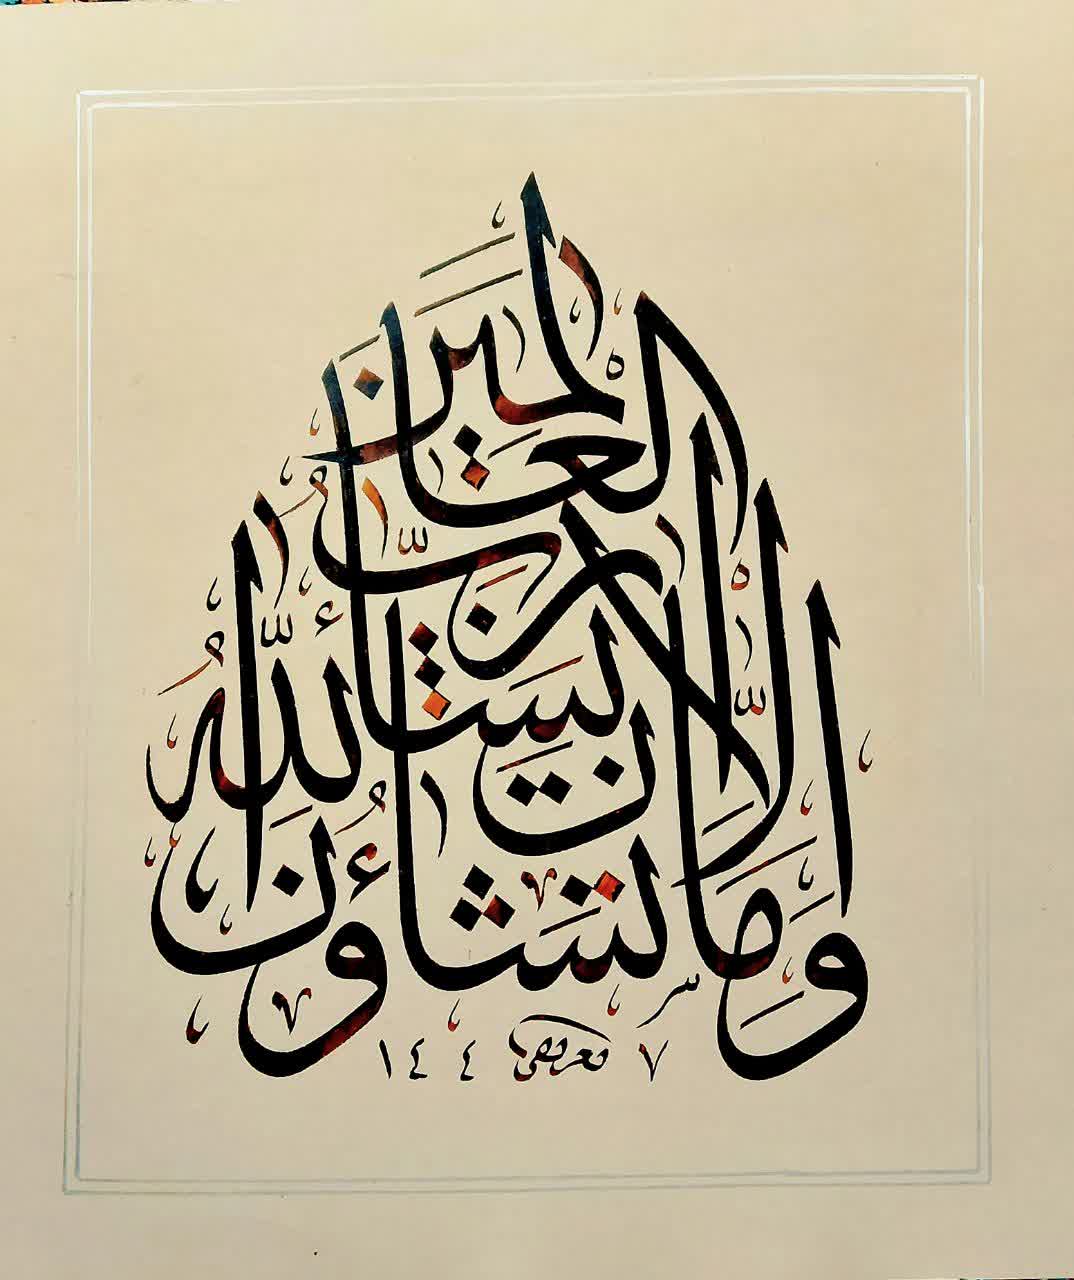 وَمَا تَشَاءُونَ إِلَّا أَنْ يَشَاءَ اللَّهُ رَبُّ الْعَالَمِينَ
١٤٤